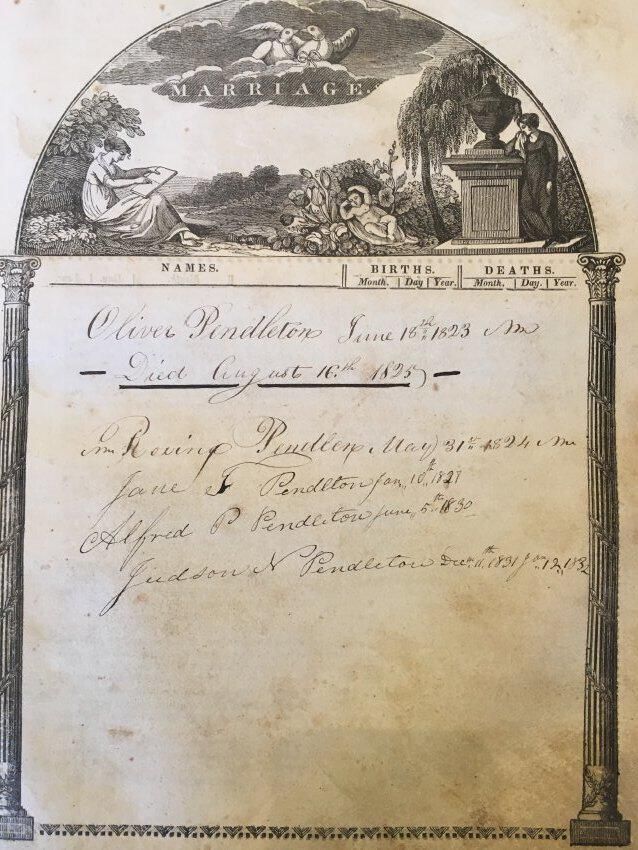 MARRIAGE.
NAMES. BIRTHS. DEATHS.
Month. Day Year. Month. Day. Year.
Oliver Pendleton June 18th 1823
Died August 16th 1825
Pendleton May 31st 1824
Jane Pendleton Jan 10th 1827
Alfred P Pendleton June 5th 1830
Judson N Pendleton Dec 11th 1831 Jan 12 1832